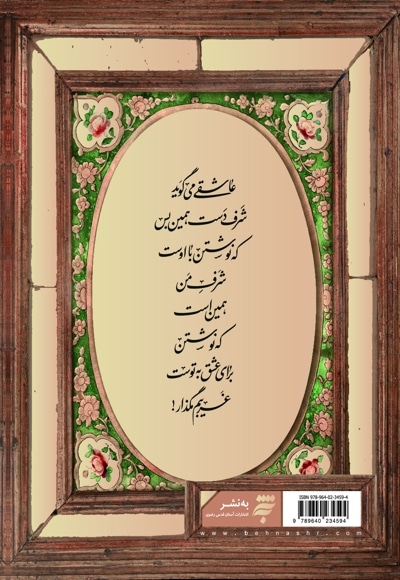 عاشقی می‌گوید
شرف دست همین بس
که نوشتن با اوست
شرفِ من
همین است
که نوشتن
برای عشق به توست
غریبم مگذار!
ISBN 978-964-02-3459-4
9 789640 234594
به‌نشر
انتشارات آستان قدس رضوی
www.behnashr.com